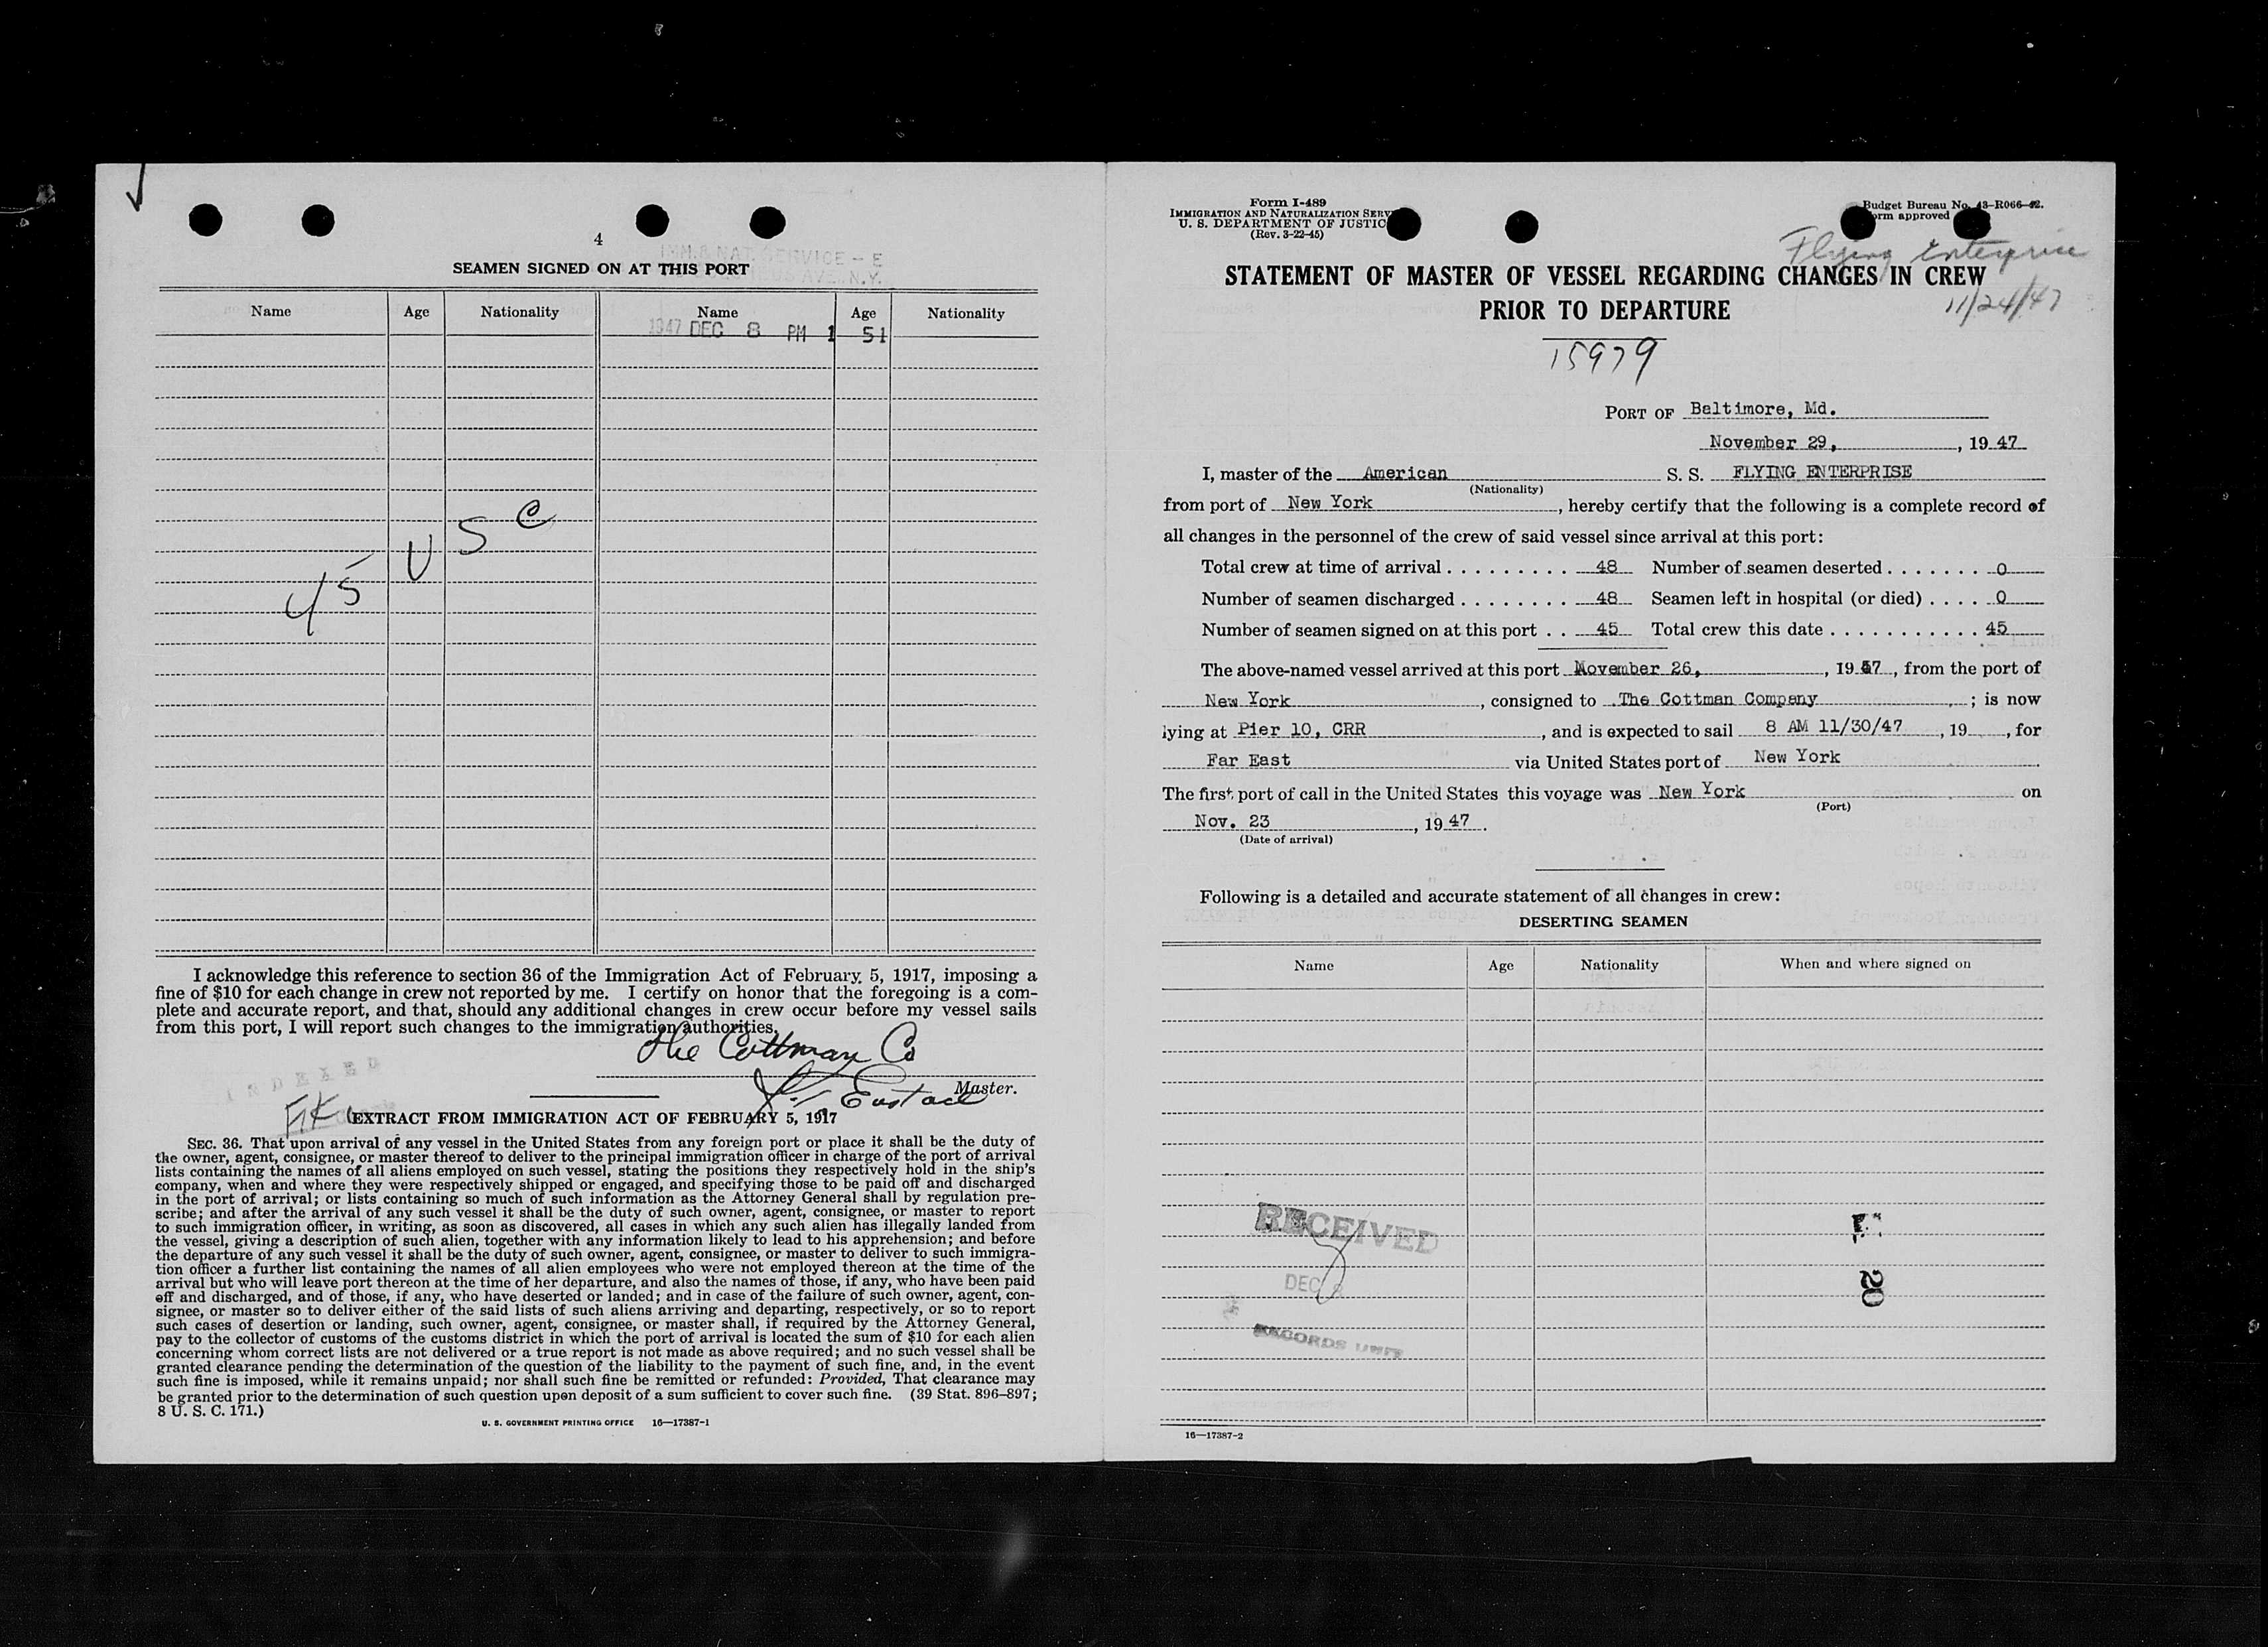 4
IMM. & NAT. SERVICE - E
AVE. N.Y.
SEAMEN SIGNED ON AT THIS PORT
Name Age Nationality Name Age Nationality
1947 DEC 8 PM 1 51
45 U S C
I acknowledge this reference to section 36 of the Immigration Act of February 5, 1917, imposing a
fine of $10 for each change in crew not reported by me. I certify on honor that the foregoing is a com-
plete and accurate report, and that, should any additional changes in crew occur before my vessel sails
from this port, I will report such changes to the immigration authorities.
The Cottman Co
Eustace Master.
INDEXED
EXTRACT FROM IMMIGRATION ACT OF FEBRUARY 5, 1917
SEC. 36. That upon arrival of any vessel in the United States from any foreign port or place it shall be the duty of
the owner, agent, consignee, or master thereof to deliver to the principal immigration officer in charge of the port of arrival
lists containing the names of all aliens employed on such vessel, stating the positions they respectively hold in the ship's
company, when and where they were respectively shipped or engaged, and specifying those to be paid off and discharged
in the port of arrival; or lists containing so much of such information as the Attorney General shall by regulation pre-
scribe; and after the arrival of any such vessel it shall be the duty of such owner, agent, consignee, or master to report
to such immigration officer, in writing, as soon as discovered, all cases in which any such alien has illegally landed from
the vessel, giving a description of such alien, together with any information likely to lead to his apprehension; and before
the departure of any such vessel it shall be the duty of such owner, agent, consignee, or master to deliver to such immigra-
tion officer a further list containing the names of all alien employees who were not employed thereon at the time of the
arrival but who will leave port thereon at the time of her departure, and also the names of those, if any, who have been paid
off and discharged, and of those, if any, who have deserted or landed; and in case of the failure of such owner, agent, con-
signee, or master so to deliver either of the said lists of such aliens arriving and departing, respectively, or so to report
such cases of desertion or landing, such owner, agent, consignee, or master shall, if required by the Attorney General,
pay to the collector of customs of the customs district in which the port of arrival is located the sum of $10 for each alien
concerning whom correct lists are not delivered or a true report is not made as above required; and no such vessel shall be
granted clearance pending the determination of the question of the liability to the payment of such fine, and, in the event
such fine is imposed, while it remains unpaid; nor shall such fine be remitted or refunded: Provided, That clearance may
be granted prior to the determination of such question upon deposit of a sum sufficient to cover such fine. (39 Stat. 896–897;
8 U. S. C. 171.)
U. S. GOVERNMENT PRINTING OFFICE 16—17387-1
Form I-489
IMMIGRATION AND NATURALIZATION SERV
U. S. DEPARTMENT OF JUSTIC
(Rev. 3-22-45)
Budget Bureau No. 43-R066-42.
orm approved
Flying Enterprise
11/24/47
STATEMENT OF MASTER OF VESSEL REGARDING CHANGES IN CREW
PRIOR TO DEPARTURE
15979
PORT OF Baltimore, Md.
November 29, , 19 47
I, master of the American S. S. FLYING ENTERPRISE
(Nationality)
from port of New York , hereby certify that the following is a complete record of
all changes in the personnel of the crew of said vessel since arrival at this port:
Total crew at time of arrival . . . . . . . . . 48 Number of seamen deserted . . . . . . . 0
Number of seamen discharged . . . . . . . . 48 Seamen left in hospital (or died) . . . . 0
Number of seamen signed on at this port . . 45 Total crew this date . . . . . . . . . . . 45
The above-named vessel arrived at this port November 26, , 19 47 , from the port of
New York , consigned to The Cottman Company ; is now
lying at Pier 10, CRR , and is expected to sail 8 AM 11/30/47 , 19 , for
Far East via United States port of New York
The first port of call in the United States this voyage was New York on
(Port)
Nov. 23 , 19 47 .
(Date of arrival)
Following is a detailed and accurate statement of all changes in crew:
DESERTING SEAMEN
Name Age Nationality When and where signed on
RECEIVED
DEC
20
RECORDS UNIT
16—17387-2